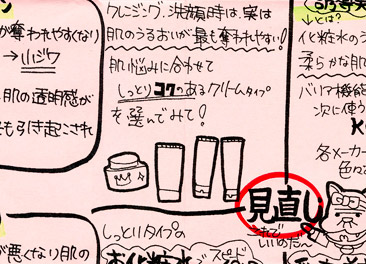 が奪われやすくなり
→小ジワ
肌の透明感が
も引き起こされ
クレンジング、洗顔時は、実は
肌のうるおいが最も奪われやすい!
肌悩みに合わせて
しっとりコクのあるクリームタイプ
を選んでみて!
↓とは?
イヒ粧水の
柔らかな肌
バリア機能
次に使う
各メーカー
色々
見直し
これで
いいのだ〜
が悪くなり肌の
しっとりタイプの
お化粧水
でスピード